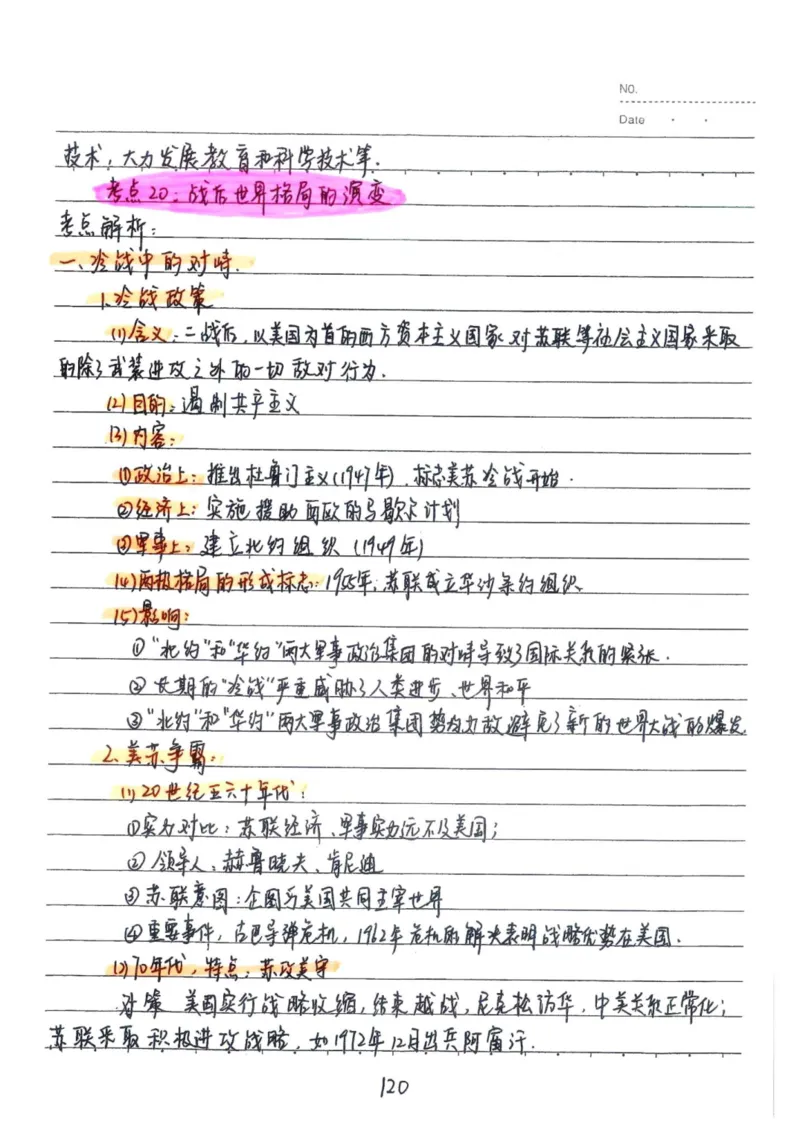 No.
Date
技术，大力发展教育和科学技术等.
考点20：战后世界格局的演变
考点解析：
一、冷战中的对峙.
1.冷战政策
(1)含义：二战后，以美国为首的西方资本主义国家对苏联等社会主义国家采取
的除了武装进攻之外的一切敌对行为.
(2)目的：遏制共产主义
(3)内容：
①政治上：推出杜鲁门主义(1947年)，标志美苏冷战开始.
②经济上：实施援助西欧的马歇尔计划
③军事上：建立北约组织 (1949年)
(4)两极格局的形成标志：1955年，苏联成立华沙条约组织
(5)影响：
①"北约"和"华约"两大军事政治集团的对峙导致了国际关系的紧张.
②长期的"冷战"严重威胁了人类进步、世界和平
③"北约"和"华约"两大军事政治集团势均力敌避免了新的世界大战的爆发.
2.美苏争霸：
(1)20世纪五六十年代：
①实力对比：苏联经济、军事实力远不及美国；
②领导人：赫鲁晓夫、肯尼迪
③苏联意图：企图与美国共同主宰世界
④重要事件，古巴导弹危机，1962年危机的解决表明战略优势在美国.
(2)70年代，特点：苏攻美守
对策 美国实行战略收缩，结束越战，尼克松访华，中美关系正常化；
苏联采取积极进攻战略，如1972年12月出兵阿富汗.
120